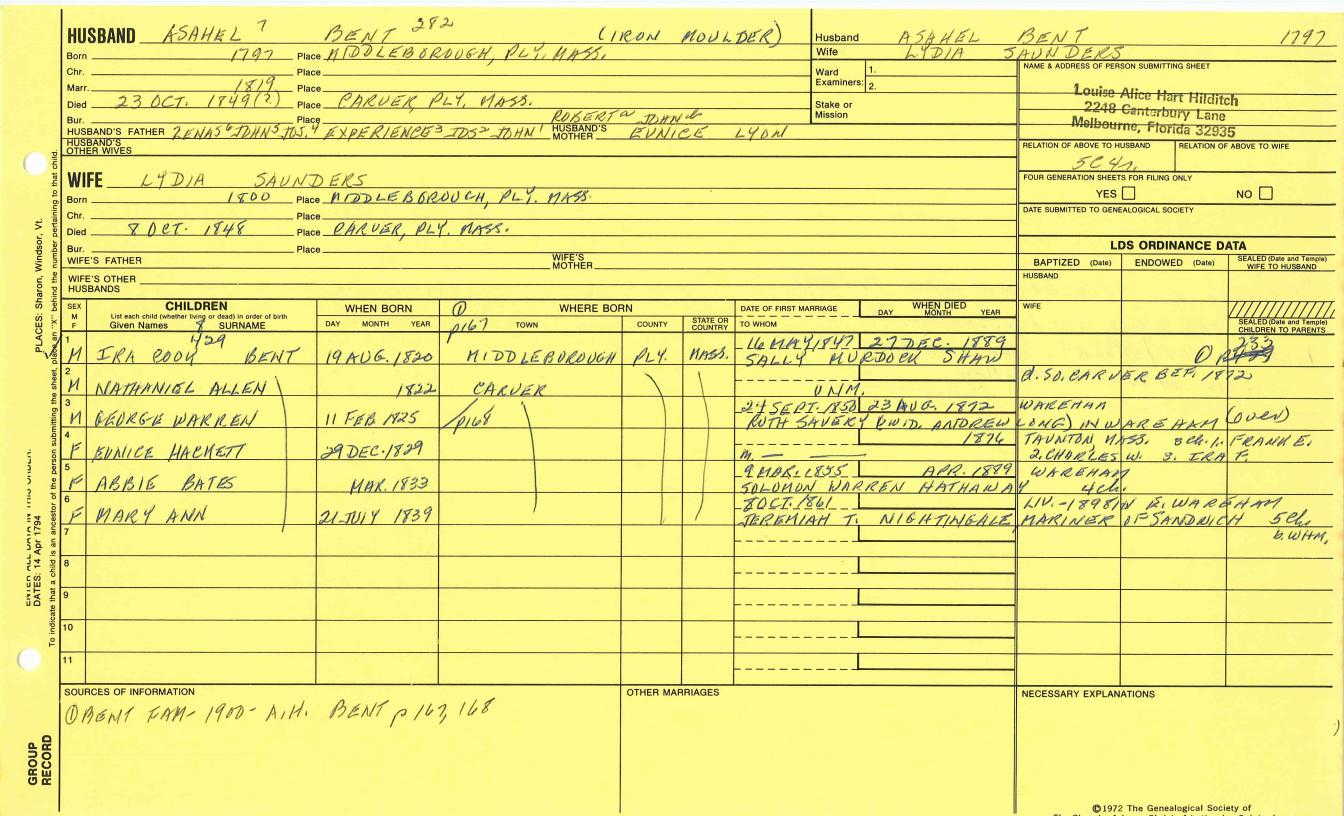 HUSBAND ASAHEL 7 BENT 282 (IRON MOULDER)
Born 1797 Place MIDDLEBOROUGH, PLY. MASS.
Chr. Place
Marr. 1819 Place
Died 23 OCT. 1849(?) Place CARVER, PLY, MASS.
Bur. Place
ROBERT a JOHN b
HUSBAND'S FATHER ZENAS 6 JOHN 5 JOS. 4 EXPERIENCE 3 JOS 2 JOHN 1 HUSBAND'S MOTHER EUNICE LYON
HUSBAND'S OTHER WIVES
Husband ASAHEL BENT 1797
Wife LYDIA SAUNDERS
Ward Examiners: 1. 2.
Stake or Mission
NAME & ADDRESS OF PERSON SUBMITTING SHEET
Louise Alice Hart Hilditch
2248 Canterbury Lane
Melbourne, Florida 32935
RELATION OF ABOVE TO HUSBAND RELATION OF ABOVE TO WIFE
5C4r.
FOUR GENERATION SHEETS FOR FILING ONLY
YES NO
DATE SUBMITTED TO GENEALOGICAL SOCIETY
WIFE LYDIA SAUNDERS
Born 1800 Place MIDDLEBOROUGH, PLY. MASS.
Chr. Place
Died 8 OCT. 1848 Place CARVER, PLY. MASS.
Bur. Place
WIFE'S FATHER WIFE'S MOTHER
WIFE'S OTHER HUSBANDS
LDS ORDINANCE DATA
BAPTIZED (Date) ENDOWED (Date) SEALED (Date and Temple) WIFE TO HUSBAND
HUSBAND
WIFE
SEALED (Date and Temple) CHILDREN TO PARENTS
SEX M F
CHILDREN
List each child (whether living or dead) in order of birth
Given Names SURNAME
8
429
WHEN BORN
DAY MONTH YEAR
① WHERE BORN
p167 TOWN COUNTY STATE OR COUNTRY
DATE OF FIRST MARRIAGE
TO WHOM
WHEN DIED
DAY MONTH YEAR
1 16 MAY 1847 27 DEC. 1889 233
M IRA COOK BENT 19 AUG. 1820 MIDDLEBOROUGH PLY. MASS. SALLY MURDOCK SHAW
2 d. SO. CARVER BEF. 1872
M NATHANIEL ALLEN 1822 CARVER UNM.
3 24 SEPT. 1850 23 AUG. 1872 WAREHAM
M GEORGE WARREN 11 FEB 1825 p168 RUTH SAVERY (WID. ANDREW LONG) IN WAREHAM (over)
4 1876 TAUNTON, MASS. 3ch. 1. FRANK E.
F EUNICE HACKETT 29 DEC. 1829 m. — 2. CHARLES W. 3. IRA F.
5 9 MAR. 1855 APR. 1879 WAREHAM
F ABBIE BATES MAR. 1833 SOLOMON WARREN HATHAWAY 4ch.
6 8 OCT. 1861 LIV. -1898 IN E. WAREHAM
F MARY ANN 21 JULY 1839 JEREMIAH T. NIGHTINGALE, MARINER OF SANDWICH 5ch.
7 b. WHM.
8
9
10
11
SOURCES OF INFORMATION
① BENT FAM- 1900- A.H. BENT p 167, 168
OTHER MARRIAGES
NECESSARY EXPLANATIONS
©1972 The Genealogical Society of
PLACES: Sharon, Windsor, Vt.
DATES: 14 Apr 1794
To indicate that a child is an ancestor of the person submitting the sheet, place an "X" behind the number pertaining to that child.
GROUP RECORD